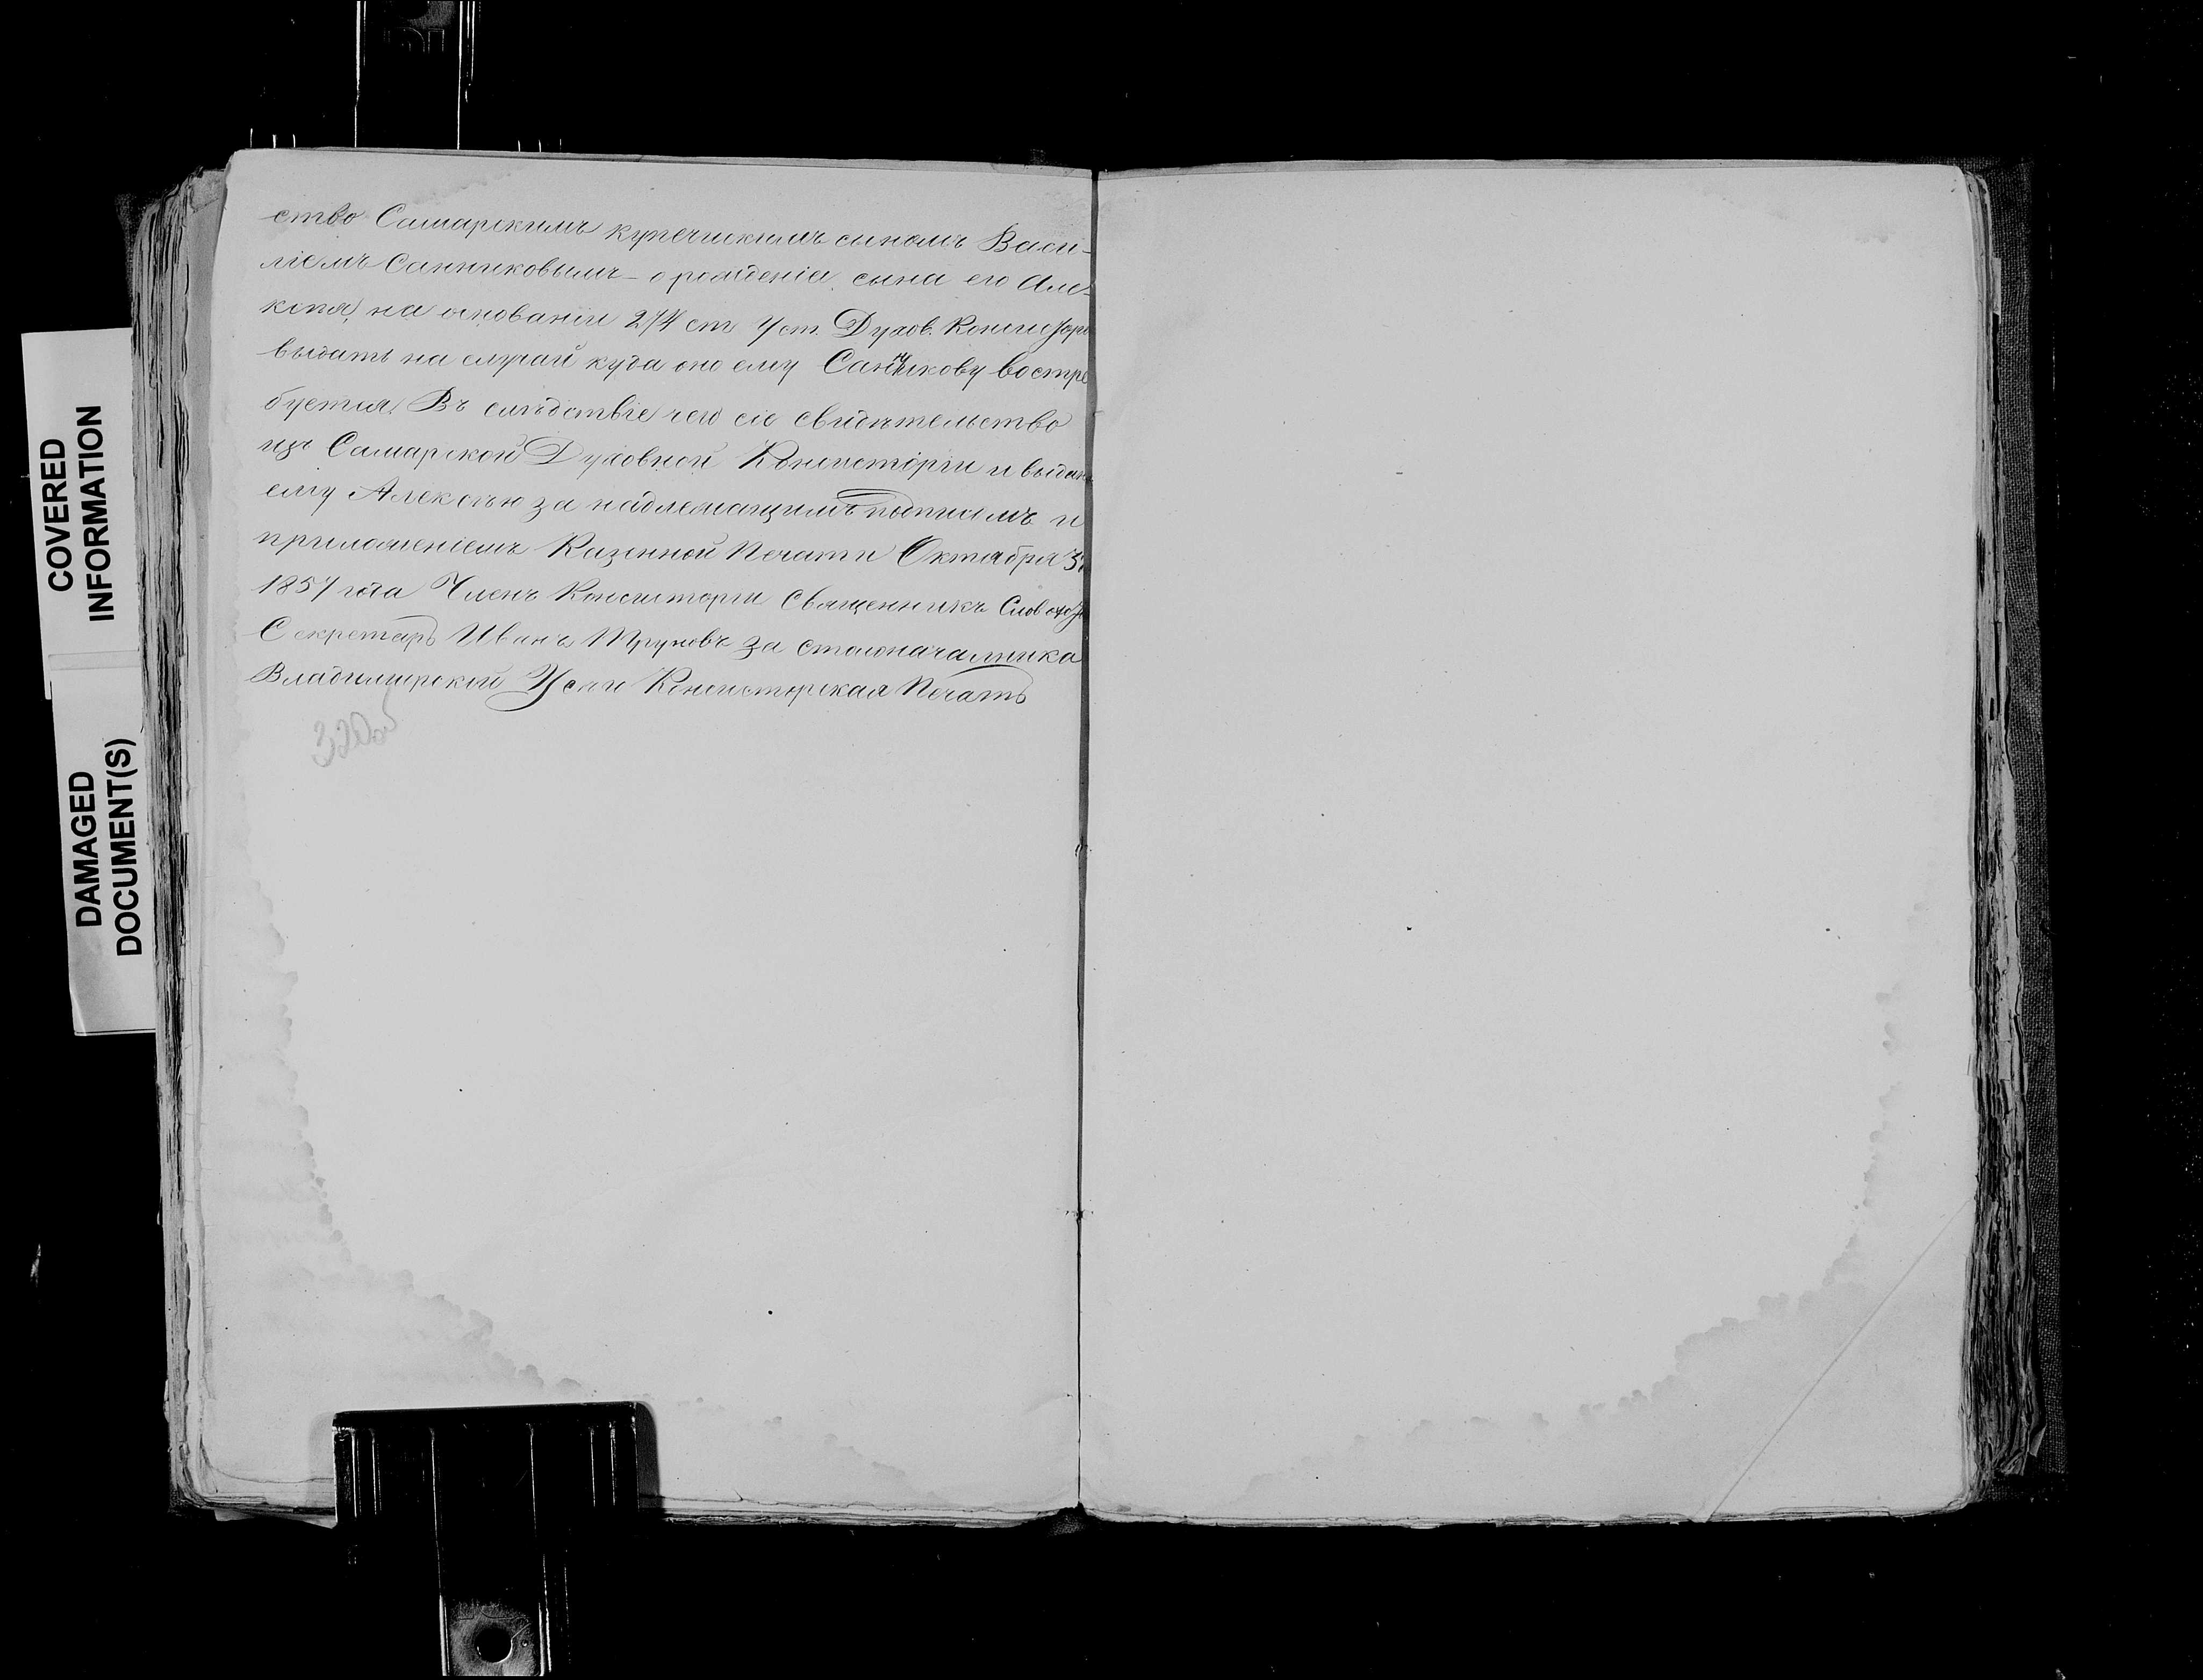 ство Самарскимъ купеческимъ сыномъ Васи-
ліемъ Санниковымъ - о рожденіи сына его Але-
ксѣя, на основаніи 274 ст Уст. Духов. Консистор
выдать на случай куда оно ему Санникову востре
буется, Въ слѣдствіе чего сіе свидѣтельство
изъ Самарской Духовной Консисторіи и выдан
ему Алексѣю за надлежащимъ подписомъ и
приложеніемъ Казенной Печати Октября 31
1857 года Членъ Консисторіи Священникъ
Секретарь Иванъ Труновъ за столоначальника
Владимирской Консисторская Печать
320об
COVERED
INFORMATION
DAMAGED
DOCUMENT(S)